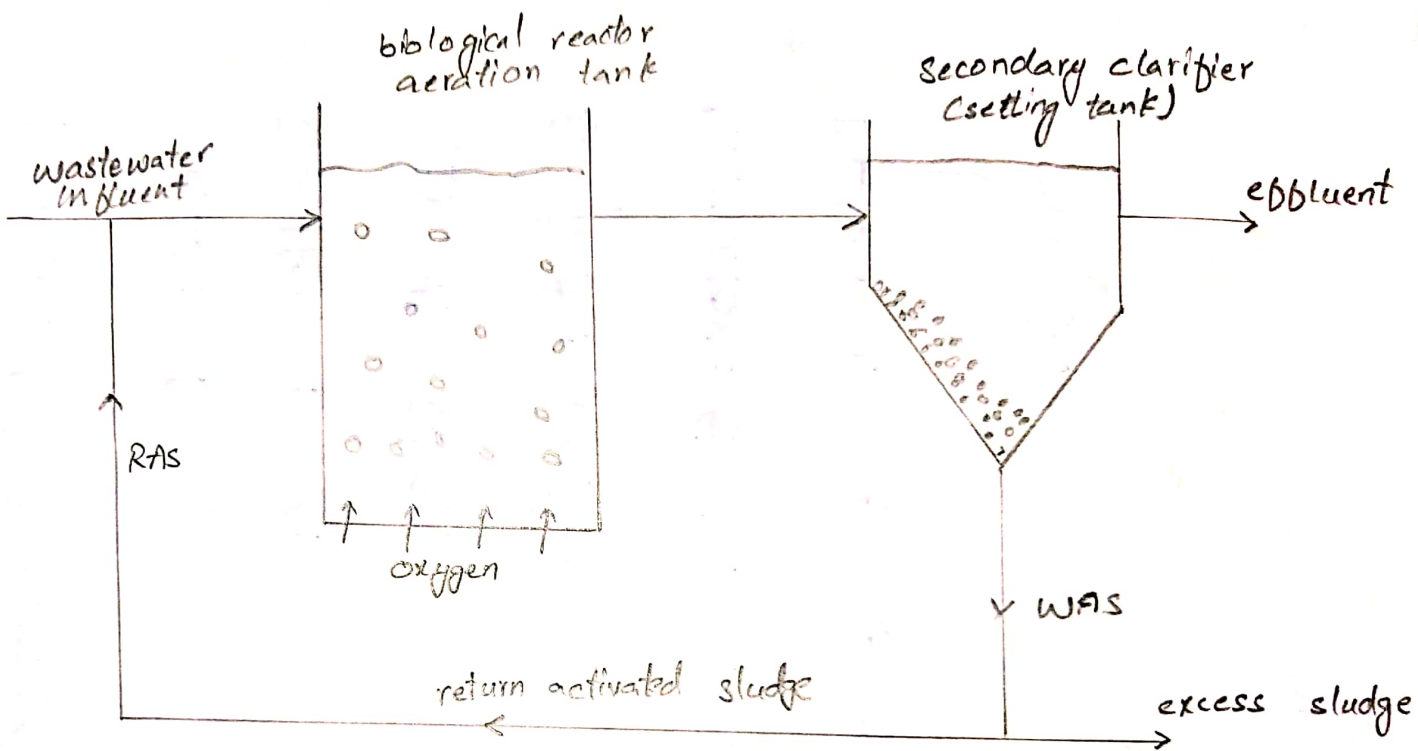 biological reactor
aeration tank
secondary clarifier
(settling tank)
wastewater
influent
effluent
RAS
oxygen
WAS
return activated sludge
excess sludge